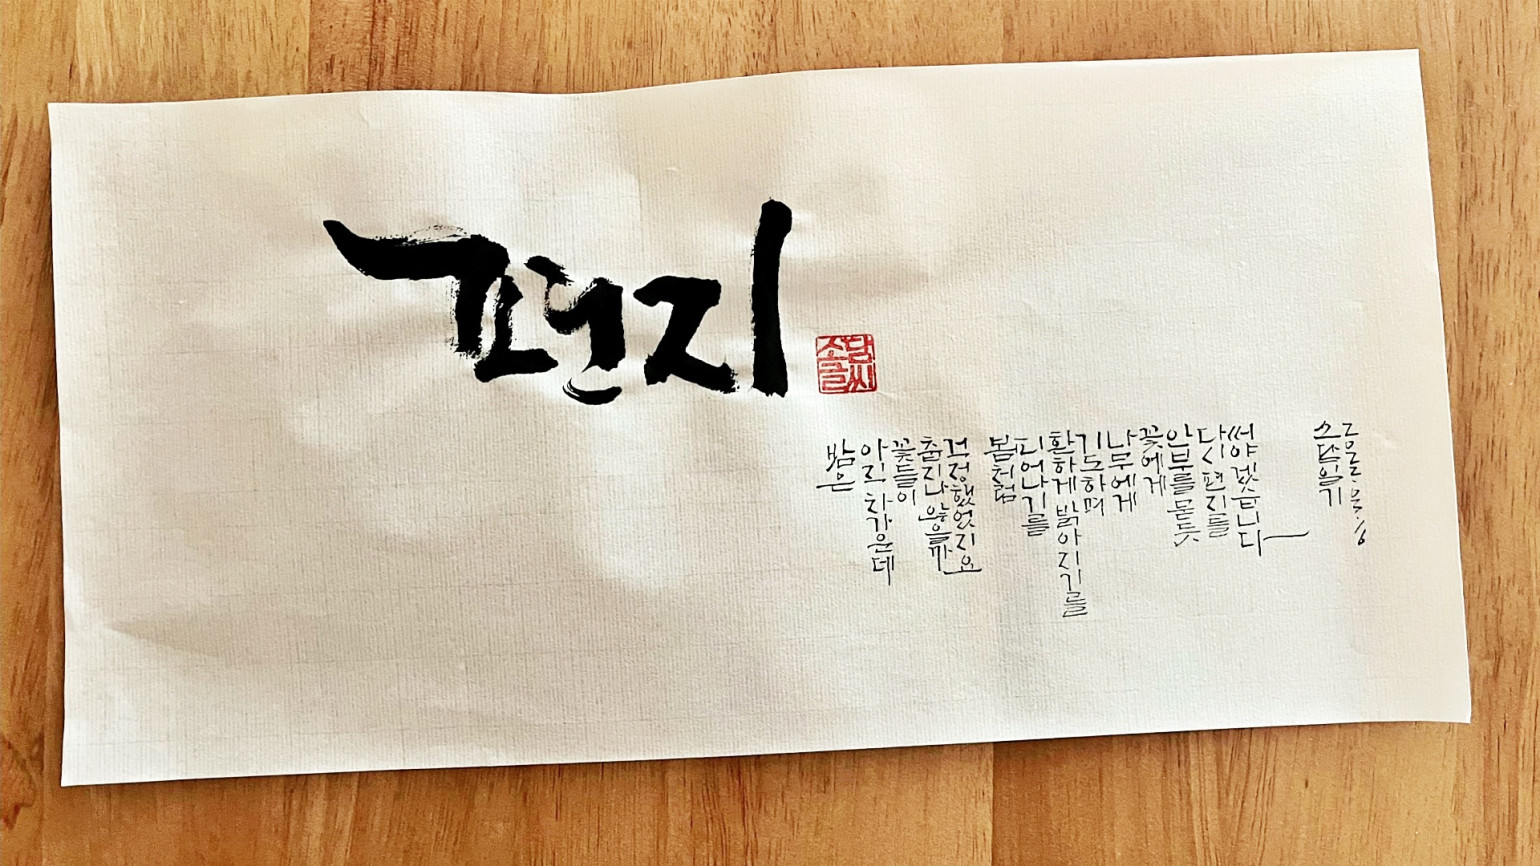 편지
소담
글씨
밤은
아직 차가운데
꽃들이
춥지나 않을까
걱정했었지요
봄처럼
피어나기를
환하게 밝아지기를
기도하며
나무에게
꽃에게
안부를 묻듯
다시 편지를
써야겠습니다
소담일기